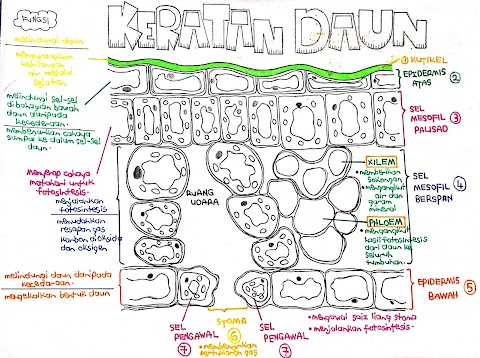 KERATAN DAUN
FUNGSI
melindungi daun
mengurangkan
kehilangan
air melalui
sejatan
melindungi sel-sel
di bahagian bawah
daun daripada
kecederaan
membenarkan cahaya
sampai ke dalam sel-sel
daun
Menyerap cahaya
matahari untuk
fotosintesis.
menjalankan
fotosintesis
memudahkan
resapan gas
karbon dioksida
dan oksigen
melindungi daun daripada
kecederaan.
mengekalkan bentuk daun
① KUTIKEL
EPIDERMIS ②
ATAS
SEL
MESOFIL ③
PALISAD
RUANG
UDARA
XILEM
• memberikan
sokongan
• mengangkut
air dan
garam
mineral
SEL
MESOFIL ④
BERSPAN
PHLOEM
• mengangkut
hasil fotosintesis
dari daun ke
seluruh
tumbuhan.
EPIDERMIS ⑤
BAWAH
SEL
PENGAWAL
⑦
STOMA
⑥
• membenarkan
pertukaran gas
SEL
PENGAWAL
⑦
• mengawal saiz liang stoma
• menjalankan fotosintesis.